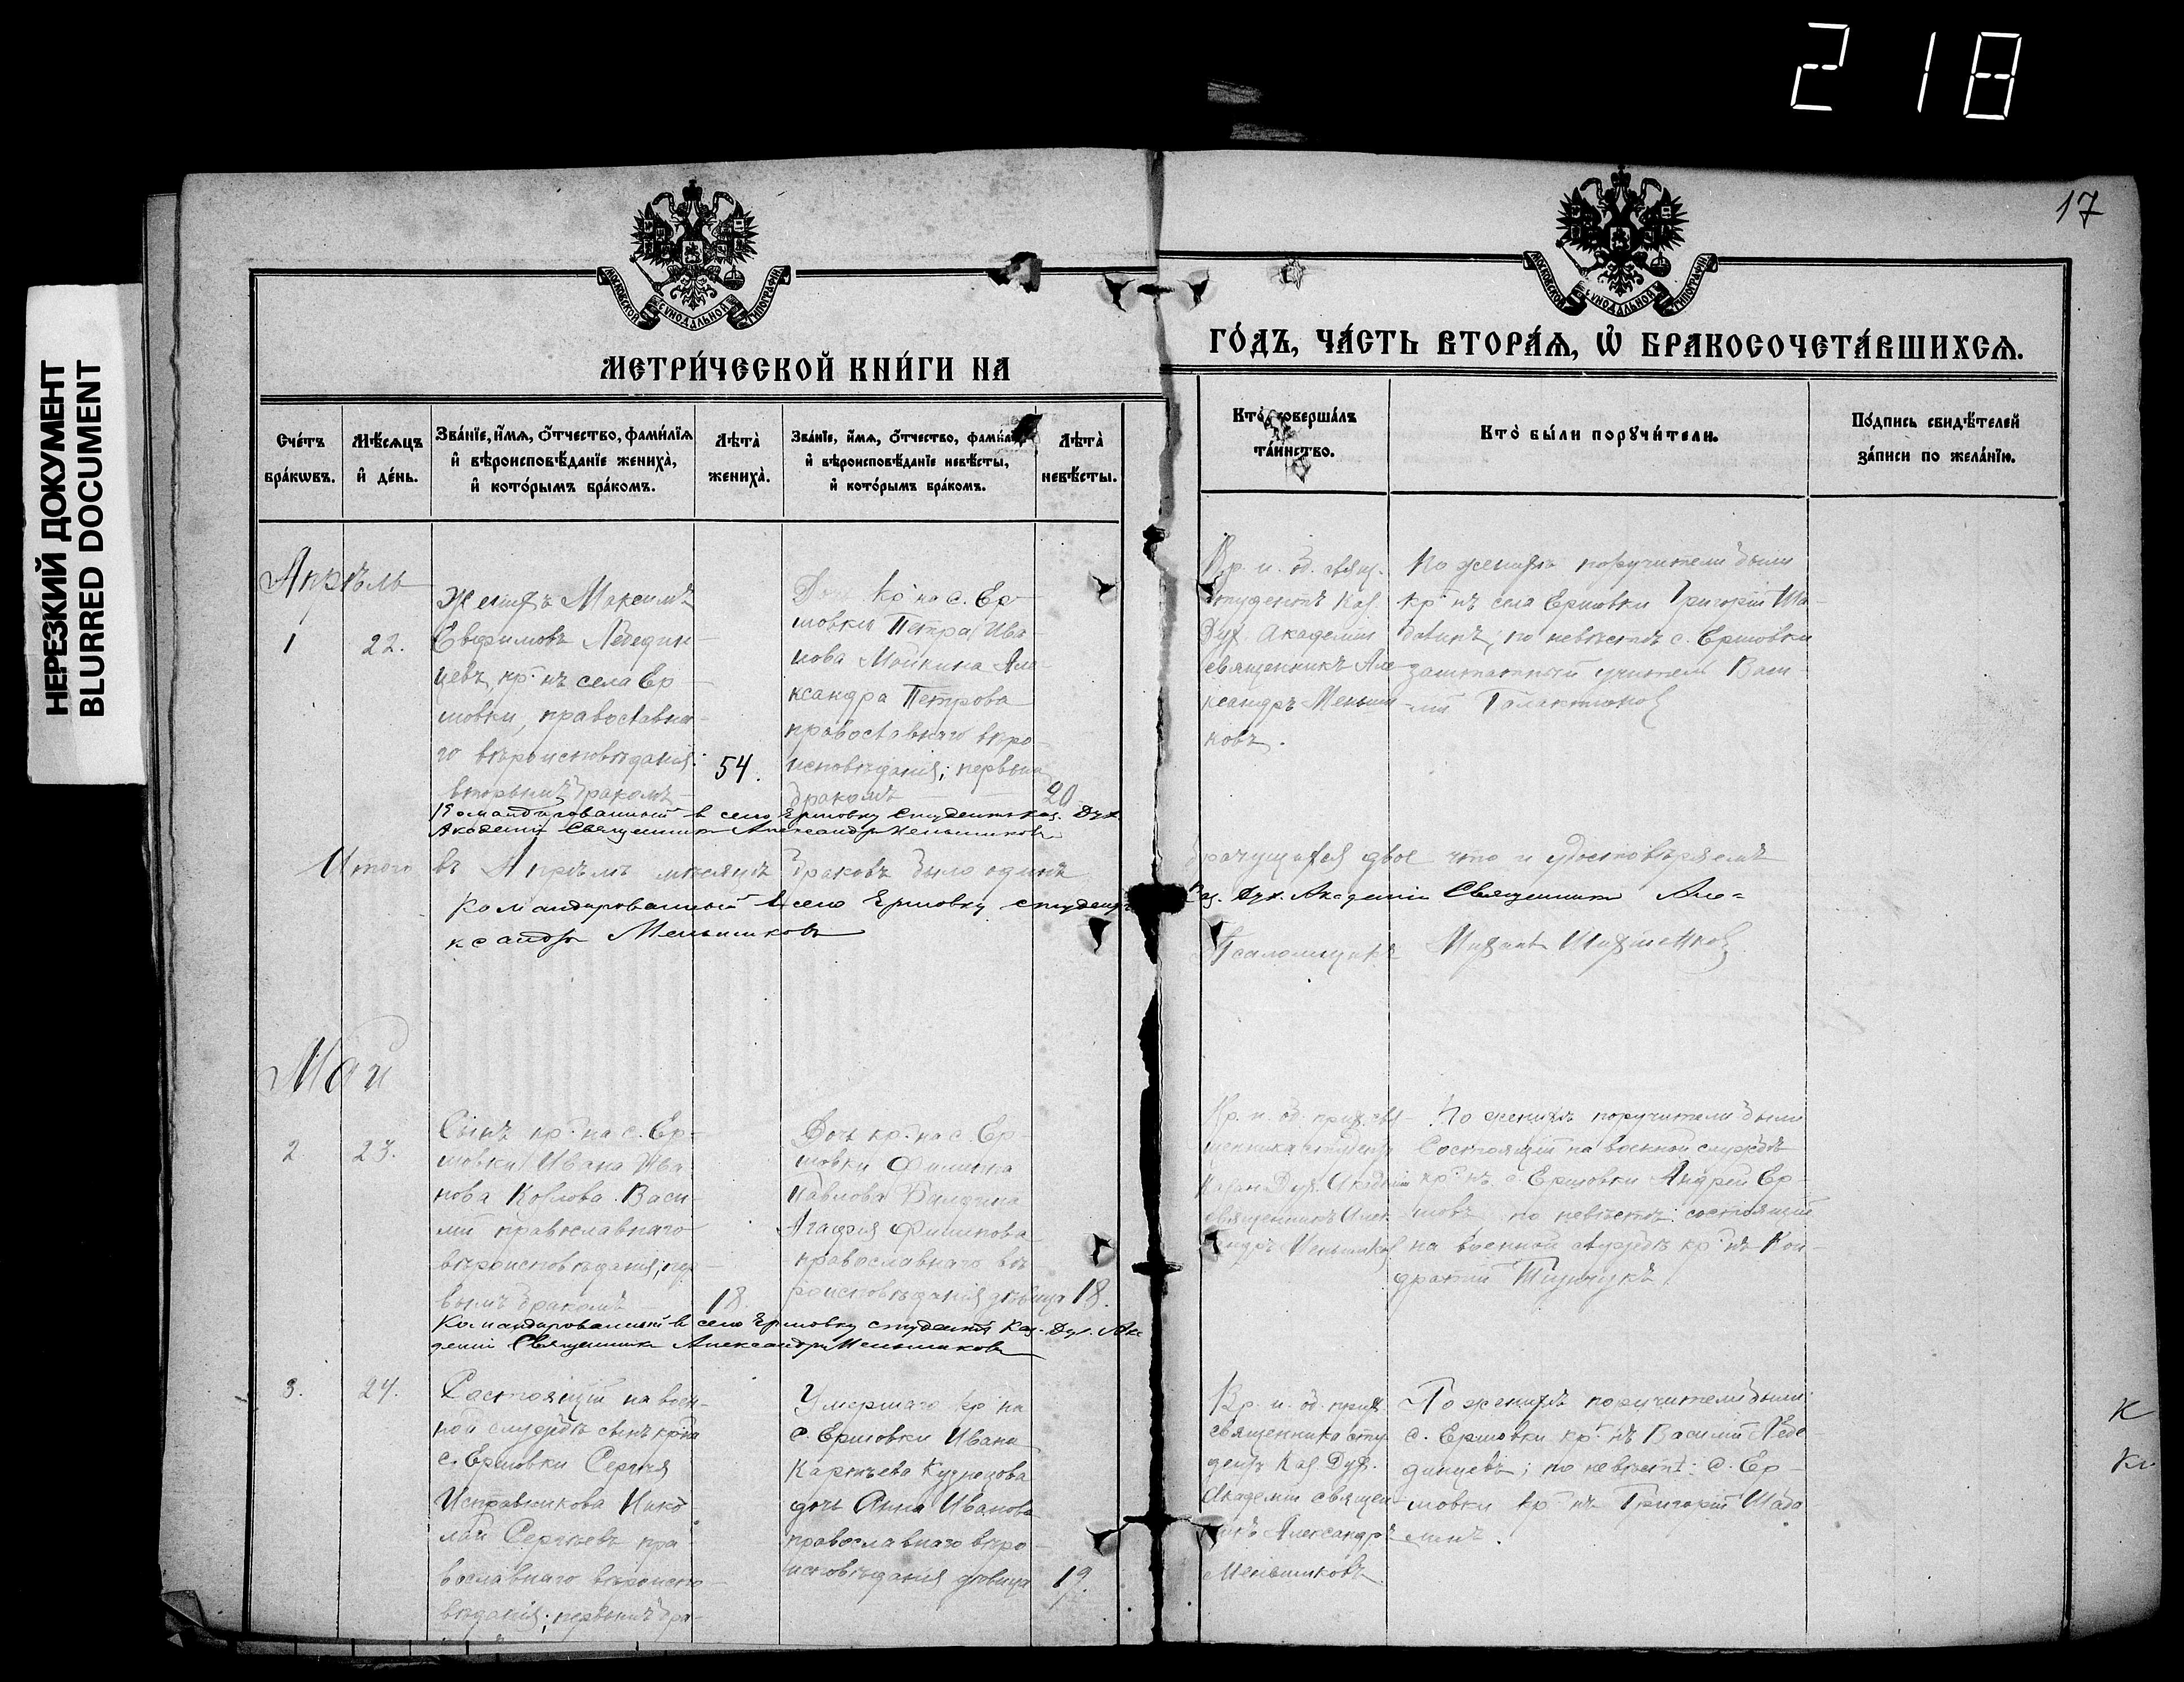 218
17
НЕРЕЗКИЙ ДОКУМЕНТ
BLURRED DOCUMENT
МОСКОВСКОЙ СѴНОДАЛЬНОЙ ТИПОГРАФІИ
МОСКОВСКОЙ СѴНОДАЛЬНОЙ ТИПОГРАФІИ
МЕТРИ́ЧЕСКОЙ КНИ́ГИ НА
ГО́ДЪ, ЧА́СТЬ ВТОРА́Ѧ, Ѡ҆ БРАКОСОЧЕТА́ВШИХСѦ.
Сче́тъ
бра́кѡвъ.
Мѣ́сѧцъ
и҆ де́нь.
Зва́нїе, и҆́мѧ, ѻ҆́тчество, фами́лїѧ
и҆ вѣроисповѣ́данїе жениха̀,
и҆ кото́рымъ бра́комъ.
Лѣта̀
жениха̀.
Зва́нїе, и҆́мѧ, ѻ҆́тчество,
и҆ вѣроисповѣ́данїе невѣ́сты,
и҆ кото́рымъ бра́комъ.
Лѣта̀
невѣ́сты.
Кто̀ соверша́лъ
та́инство.
Кто̀ бы́ли порꙋчи́тели.
По́дпись свидѣ́телей
за́писи по жела́нїю.
Апрѣль
1
22.
Женихъ Максимъ
Евфимовъ Лебедин-
цевъ, кр-нъ села Ер-
шовки, православна-
го вѣроисповѣданія:
вторымъ бракомъ
54.
Дочь кр-на с. Ер-
шовки Петра Ива-
нова Мойкина Але-
ксандра Петрова
православнаго вѣро-
исповѣданія; первым
бракомъ
20
Вр. и. об. свящ.
студентъ Каз.
Дух. Академіи
священникъ Але-
ксандръ Меньши-
ковъ.
По женихѣ поручители были
кр-нъ села Ершовки Григорій Ша-
по невѣстѣ с. Ершовки
заштатный учитель Васи-
лій Галактіонов
Командированный в село Ершовку студент Каз. Дух.
Академіи Священник Александр Меньшиков
Итого въ Апрѣлѣ мѣсяцѣ браковъ было одинъ
двое что и удостовѣряемъ
Командированный в село Ершовку студент
Каз. Дух. Академіи Священник Але-
ксандр Меньшиков
Псаломщикъ
Май
2
23.
Сынъ кр-на с. Ер-
шовки Ивана Ива-
нова Козлова Васи-
лій православнаго
вѣроисповѣданія; пер-
вымъ бракомъ
18.
Дочь кр-на с. Ер-
шовки Филиппа
Павлова
Агафія Филипова
православнаго вѣ-
роисповѣданія дѣвица
18.
Вр. и. об. прих. свя-
щенника студентъ
Казан. Дух. Академіи
священникъ Алек-
сандръ Меньшиков
По женихѣ поручители были
Состоящій на военной службѣ
кр-нъ с. Ершовки Андрей Ер-
шовъ, по невѣстѣ: состоящій
на военной службѣ кр-нъ Кон-
дратій
Командированный в село Ершовку студент Каз. Дух. Ака-
деміи Священник Александр Меньшиков
3.
24.
Состоящій на воен-
ной службѣ сынъ кр-на
с. Ершовки Сергѣя
Исправникова Нико-
лай Сергѣевъ пра-
вославнаго вѣроиспо-
вѣданія; первымъ бра-
Умершаго кр-на
с. Ершовки Ивана
Кузнецова
дочь Анна Иванова
православнаго вѣро-
исповѣданія дѣвица
19.
Вр. и. об. прих.
священника сту-
дентъ Каз. Дух.
Академіи священ-
никъ Александръ
Меньшиковъ
По женихѣ поручители были
с. Ершовки кр-нъ Василій Лебе-
динцевъ; по невѣстѣ: с. Ер-
шовки кр-нъ Григорій